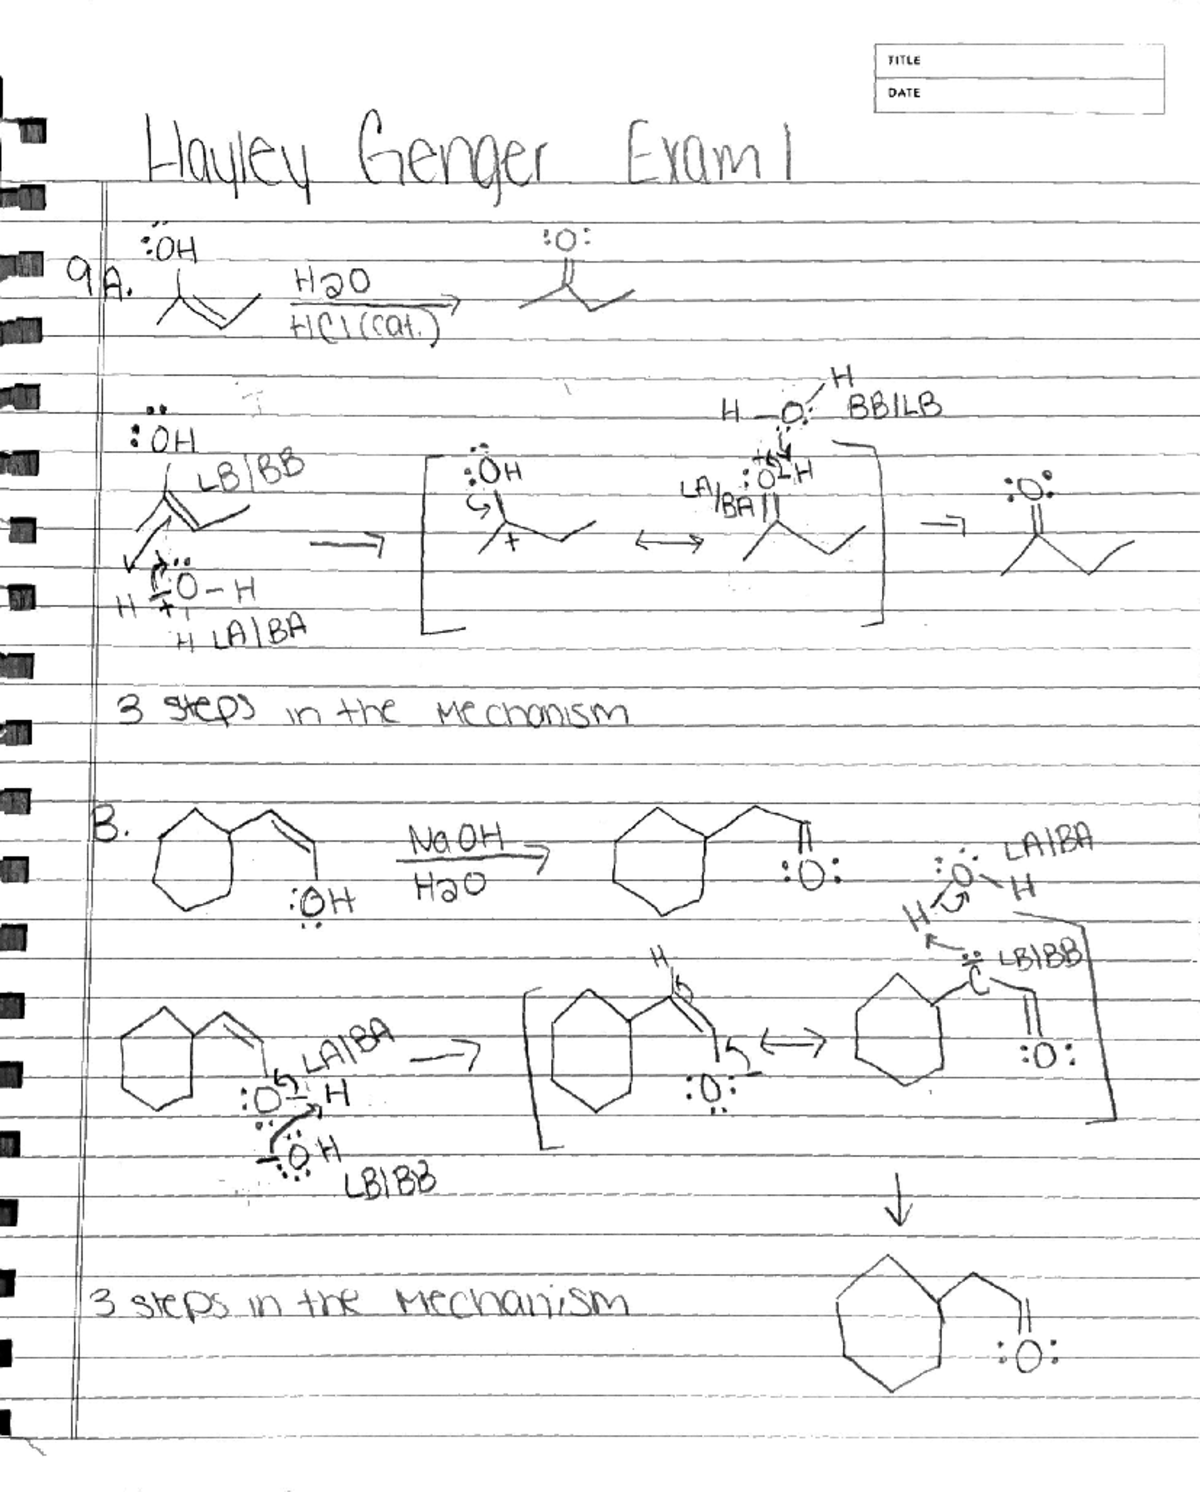 TITLE
DATE
Hayley Genger Exam 1
9A.
:ÖH
H2O
HCl (cat.)
:O:
:ÖH
LB/BB
H
+
:Ö-H
H LA/BA
:ÖH
+
H-O:
H
BB/LB
+
:O-H
LA/BA
:O:
3 steps in the Mechanism
B.
:OH
NaOH
H2O
:O:
:O:
H
H
LA/BA
:O:
H
LA/BA
-:OH
LB/BB
H
:O:-
C
LB/BB
:O:
3 steps in the Mechanism
:O: